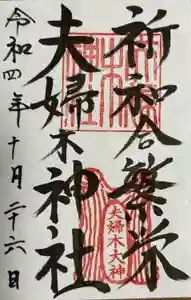 祈和合繁栄
夫婦木神社
令和四年十月二十六日
夫婦木大神